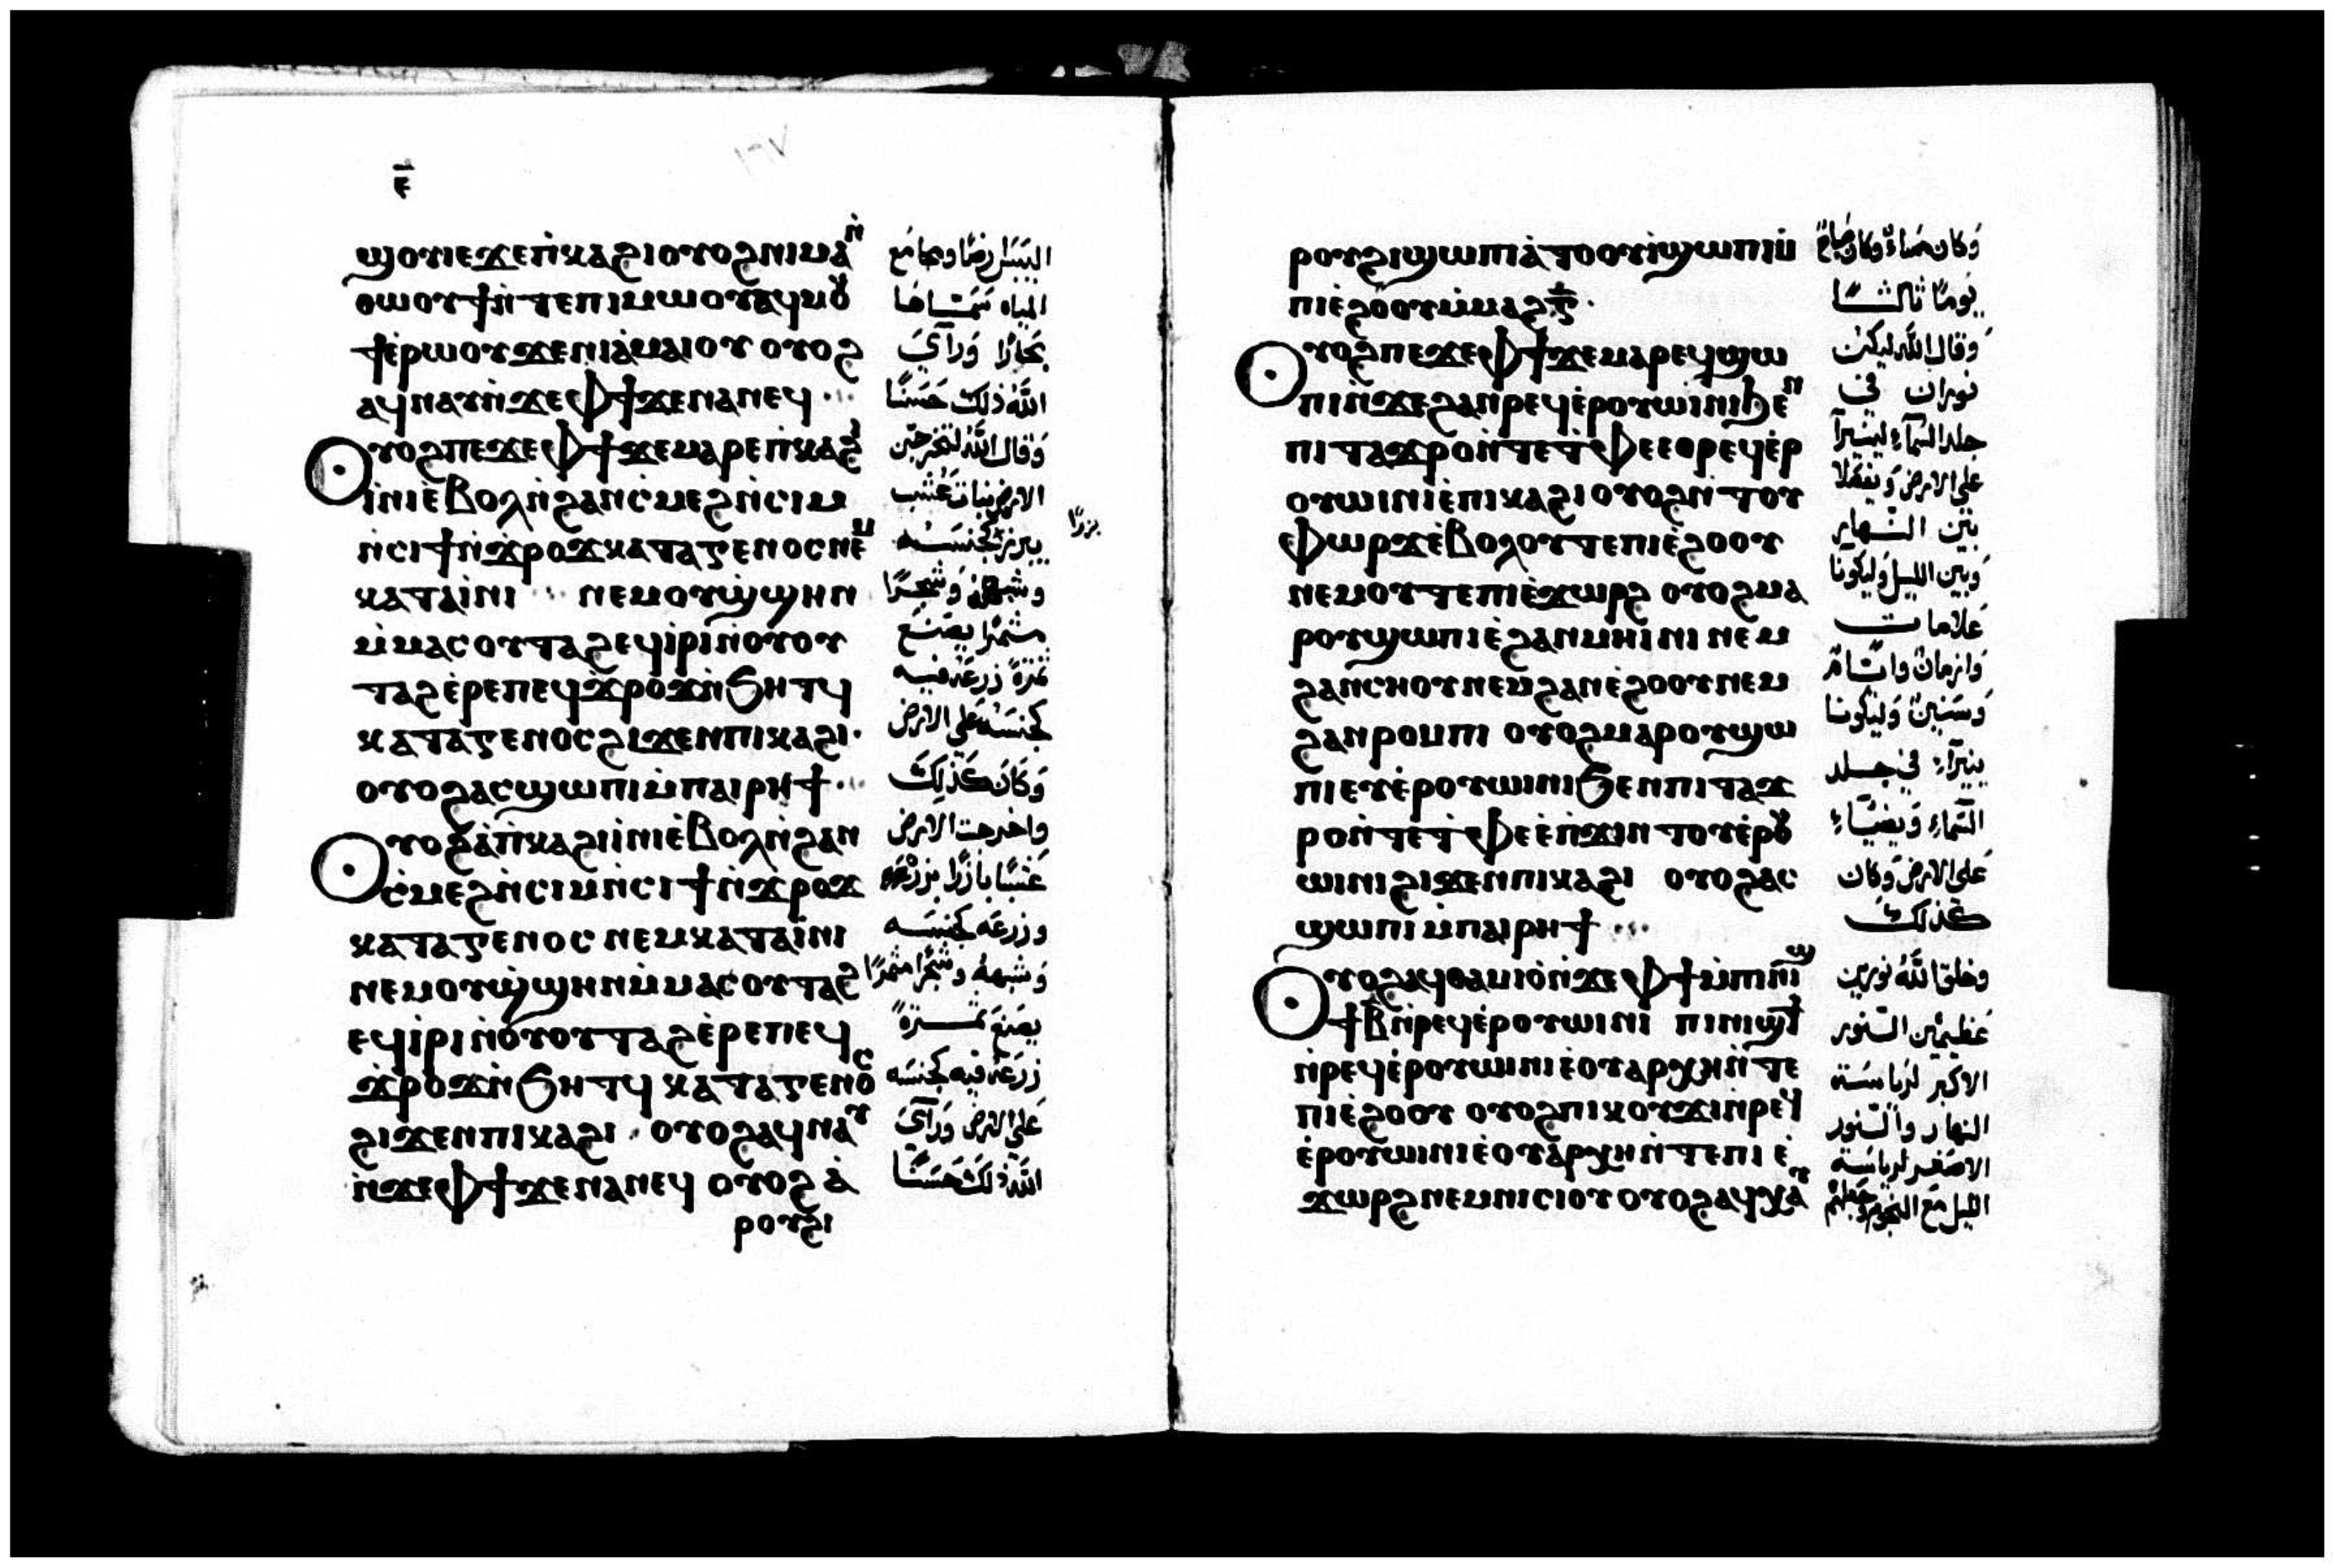 ⲉ̅
ϣⲟⲩⲓⲉϫⲉⲡ̀ⲕⲁϩⲓⲟⲩⲟϩⲛⲓⲙⲁⲛ̀
ⲑⲱⲟⲩϯⲛ̀ⲧⲉⲡⲓⲙⲱⲟⲩⲁϥⲙⲟⲩ
ϯⲉ̀ⲣⲱⲟⲩϫⲉⲛⲓⲁ̀ⲙⲁⲓⲟⲩ ⲟⲩⲟϩ
ⲁϥⲛⲁⲩⲛ̀ϫⲉⲫϯϫⲉⲛⲁⲛⲉϥ
ⲟⲩⲟϩⲡⲉϫⲉⲫϯϫⲉⲙⲁⲣⲉⲡ̀ⲕⲁϩⲓ
ⲓ̀ⲛⲓⲉ̀ⲃⲟⲗⲛ̀ϩⲁⲛⲥ̀ⲙⲉϩⲛ̀ⲥⲓⲙ
ⲛ̀ⲥⲓϯⲛ̀ϫ̀ⲣⲟϫⲕⲁⲧⲁⲅⲉⲛⲟⲥⲛⲉⲙ
ⲕⲁⲧⲁⲓ̀ⲛⲓ ⲛⲉⲙⲟⲩϣ̀ϣⲏⲛ
ⲙ̀ⲙⲁⲥⲟⲩⲧⲁϩⲉϥⲓ̀ⲣⲓⲛ̀ⲟⲩⲟⲩ
ⲧⲁϩⲉ̀ⲣⲉⲡⲉϥϫ̀ⲣⲟϫⲛ̀ϧⲏⲧϥ
ⲕⲁⲧⲁⲅⲉⲛⲟⲥϩⲓϫⲉⲛⲡⲓⲕⲁϩⲓ·
ⲟⲩⲟϩⲁⲥϣⲱⲡⲓⲙ̀ⲡⲁⲓⲣⲏϯ
ⲟⲩⲟϩⲁ̀ⲡ̀ⲕⲁϩⲓⲓ̀ⲛⲓⲉ̀ⲃⲟⲗⲛ̀ϩⲁⲛ
ⲥ̀ⲙⲉϩⲛ̀ⲥⲓⲙⲛ̀ⲥⲓϯⲛ̀ϫ̀ⲣⲟϫ
ⲕⲁⲧⲁⲅⲉⲛⲟⲥ ⲛⲉⲙⲕⲁⲧⲁⲓ̀ⲛⲓ
ⲛⲉⲙⲟⲩϣ̀ϣⲏⲛⲙ̀ⲙⲁⲥⲟⲩⲧⲁϩ
ⲉϥⲓ̀ⲣⲓⲛ̀ⲟⲩⲟⲩⲧⲁϩⲉ̀ⲣⲉⲡⲉϥ
ϫ̀ⲣⲟϫⲛ̀ϧⲏⲧϥ ⲕⲁⲧⲁⲅⲉⲛⲟⲥ
ϩⲓϫⲉⲛⲡⲓⲕⲁϩⲓ · ⲟⲩⲟϩⲁϥⲛⲁⲩ
ⲛ̀ϫⲉⲫϯϫⲉⲛⲁⲛⲉϥ ⲟⲩⲟϩ ⲁ̀
ⲣⲟⲩϩⲓ
المياه
بحارًا وَرأى
الله ذلك حَسَنًا
وَقال الله لتخرج
الارض نبات عُشب
كجنسَه على الارض
وَكانَ كَذلِكَ
واخرجت الارض
وزرعَه كجنسَه
زرعَه فيه كجنسَه
على الارض وَرآىَ
الله ذلكَ حَسَنًا
ⲣⲟⲩϩⲓϣⲱⲡⲓⲁ̀ⲧⲟⲟⲩⲓ̀ϣⲱⲡⲓⲙ̀
ⲡⲓⲉ̀ϩⲟⲟⲩⲙ̀ⲙⲁϩⲅ̅·
ⲟⲩⲟϩⲡⲉϫⲉⲫϯϫⲉⲙⲁⲣⲉϥϣⲱ
ⲡⲓⲛ̀ϫⲉϩⲁⲛⲣⲉϥⲉ̀ⲣⲟⲩⲱⲓⲛⲓϧⲉⲛ
ⲡⲓⲧⲁϫⲣⲟⲛ̀ⲧⲉⲧ̀ⲫⲉⲉⲑⲣⲉϥⲉ̀ⲣ
ⲟⲩⲱⲓⲛⲓⲉ̀ⲡⲓⲕⲁϩⲓⲟⲩⲟϩⲛ̀ⲧⲟⲩ
ⲫⲱⲣϫⲉ̀ⲃⲟⲗⲟⲩⲧⲉⲡⲓⲉ̀ϩⲟⲟⲩ
ⲛⲉⲙⲟⲩⲧⲉⲡⲓⲉ̀ϫⲱⲣϩ ⲟⲩⲟϩⲙⲁ
ⲣⲟⲩϣⲱⲡⲓⲉ̀ϩⲁⲛⲙⲏⲓⲛⲓ ⲛⲉⲙ
ϩⲁⲛⲥⲏⲟⲩⲛⲉⲙϩⲁⲛⲉ̀ϩⲟⲟⲩⲛⲉⲙ
ϩⲁⲛⲣⲟⲙⲡⲓ ⲟⲩⲟϩⲙⲁⲣⲟⲩϣⲱ
ⲡⲓⲉⲩⲉ̀ⲣⲟⲩⲱⲓⲛⲓϧⲉⲛⲡⲓⲧⲁϫ
ⲣⲟⲛ̀ⲧⲉⲧ̀ⲫⲉⲉ̀ⲡ̀ϫⲓⲛⲧⲟⲩⲉ̀ⲣⲟⲩ
ⲱⲓⲛⲓϩⲓϫⲉⲛⲡⲓⲕⲁϩⲓ ⲟⲩⲟϩⲁⲥ
ϣⲱⲡⲓⲙ̀ⲡⲁⲓⲣⲏϯ
ⲟⲩⲟϩⲁϥⲑⲁⲙⲓⲟ̀ⲛ̀ϫⲉⲫϯⲙ̀ⲡⲓⲛⲓϣ
ϯⲃ̅ⲛ̀ⲣⲉϥⲉ̀ⲣⲟⲩⲱⲓⲛⲓ ⲡⲓⲛⲓϣϯ
ⲛ̀ⲣⲉϥⲉ̀ⲣⲟⲩⲱⲓⲛⲓⲉ̀ⲟⲩⲁⲣⲭⲏⲛ̀ⲧⲉ
ⲡⲓⲉ̀ϩⲟⲟⲩ ⲟⲩⲟϩⲡⲓⲕⲟⲩϫⲓⲛ̀ⲣⲉϥ
ⲉ̀ⲣⲟⲩⲱⲓⲛⲓⲉ̀ⲟⲩⲁⲣⲭⲏⲛ̀ⲧⲉⲡⲓⲉ̀
ϫⲱⲣϩⲛⲉⲙⲛⲓⲥⲓⲟⲩⲟⲩⲟϩⲁϥⲭⲁⲩ
يَومًا ثالثًا
وَقال الله ليكن
نوران في
جلد السَّمآء ليُنيرآ
على الارض وَيفصَلا
بَين النَّهاير
وَبين الليل وَليكونا
عَلامات
وَازمانٌ وايَّامٌ
وَسنينٌ وَليكونا
في جلد
السَّماءِ وَيضيَاءِ
عَلى الارض وَكان
كذلكَ
وخلق اللَّهُ نورين
عَظيمَين النور
الاكبر لرياسَة
النهار والنور
الاصغير لرياسَة
الليل مَعَ النجوم